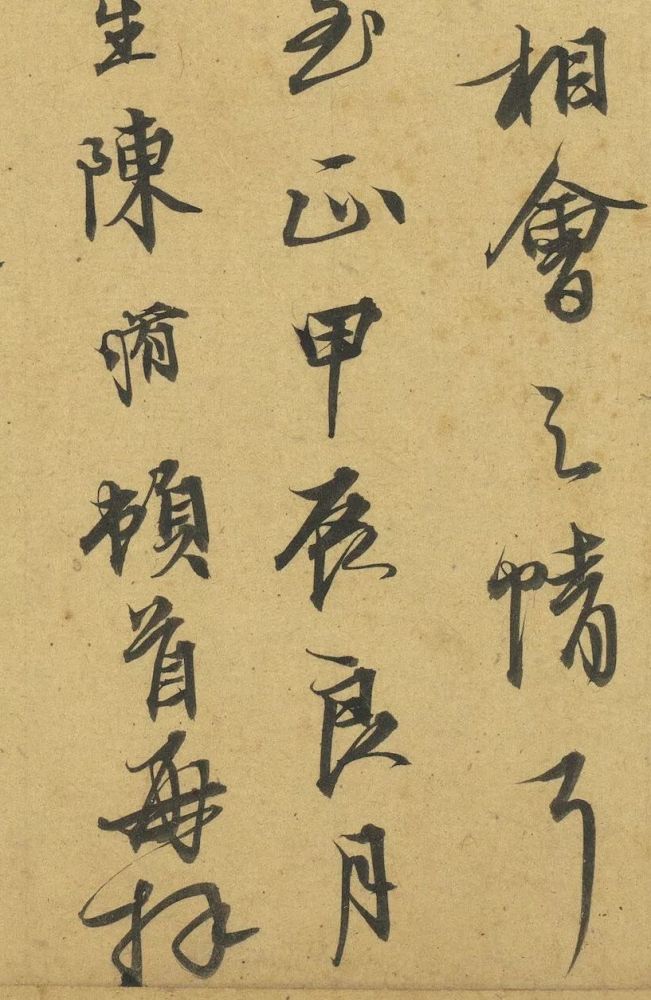 相會之情耳
至正甲辰良月
生陳脩頓首再拜